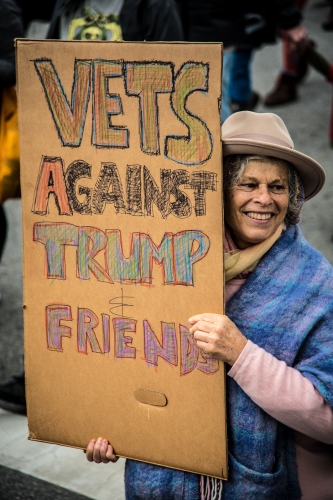 VETS
AGAINST
TRUMP
&
FRIENDS